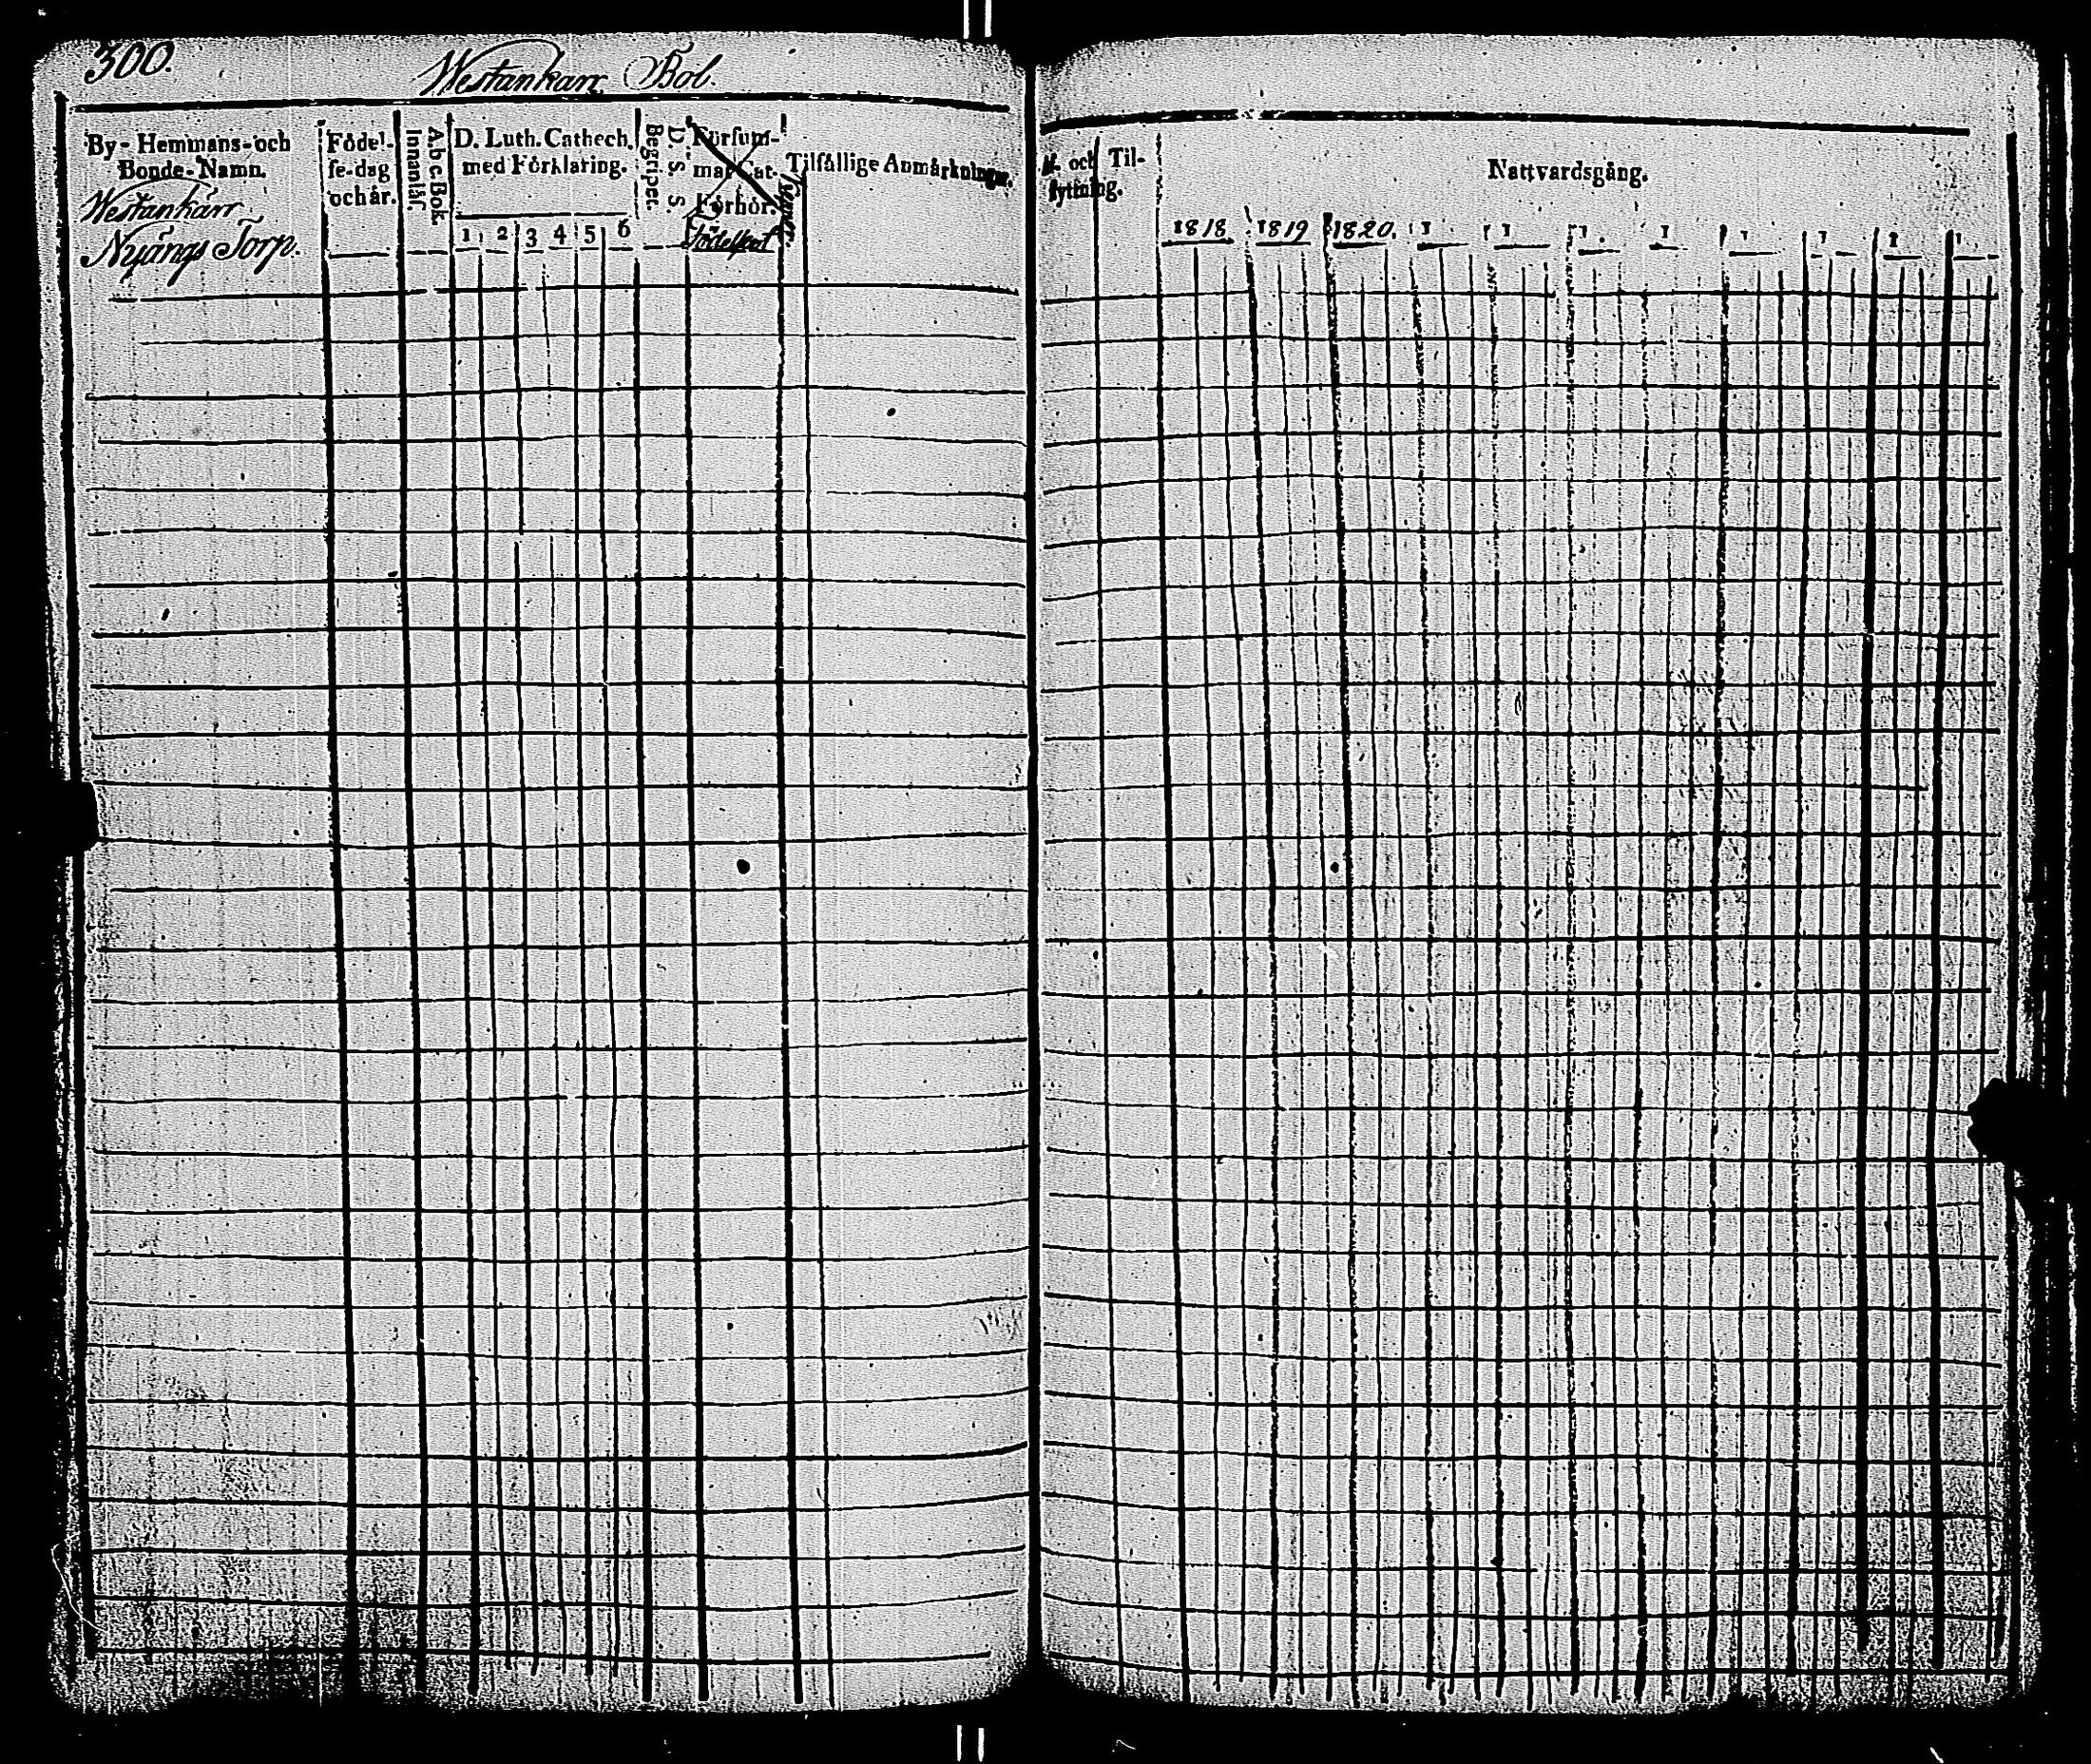 300.
Westankarr Bol.
By- Hemmans- och
Bonde-Namn.
Westankärr
Nyängs Torp.
Födel-
se-dag
och år.
A.b c Bok.
Innanläs.
D. Luth. Cathech.
med Förklaring.
1 2 3 4 5 6
D. S. S.
Begriper.
Försum-
mat Cat.
Förhör.
Födelseort
Tilfällige Anmärkningar.
och Til-
flyttning.
Nattvardsgång.
1818 1819 1820. 1 1 1 1 1 1 1 1